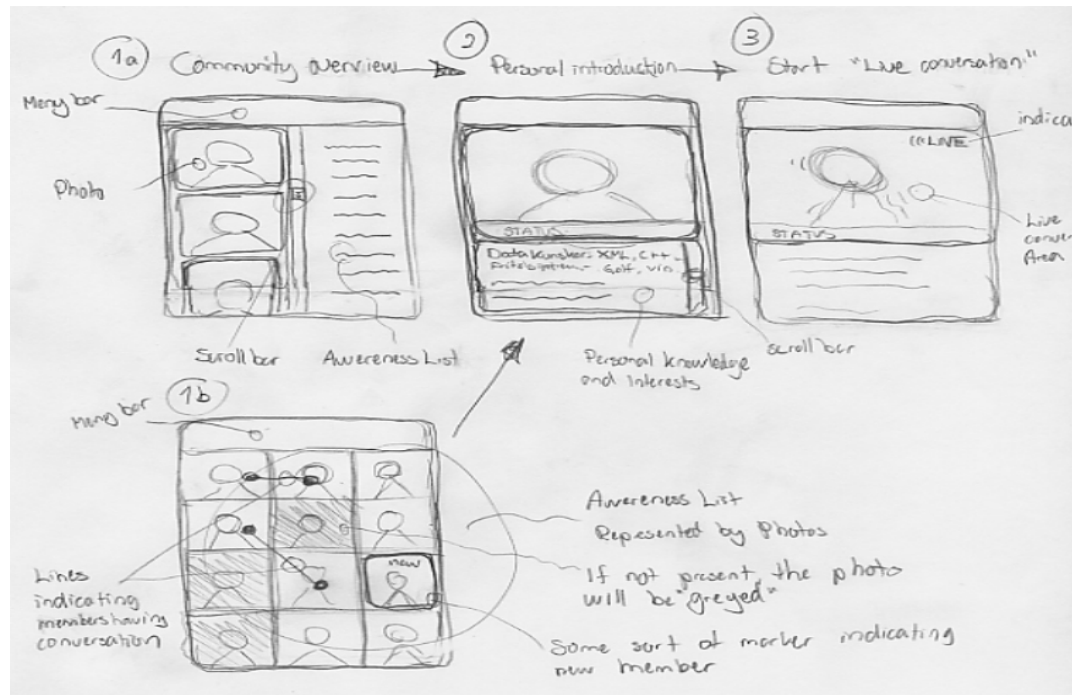 1a Community overview
2 Personal introduction
3 Start "Live conversation"
Meny bar
Photo
Scroll bar
Awareness List
STATUS
XML, C++
Golf, vin
Personal knowledge
and Interests
scroll bar
((LIVE
indica
STATUS
Live
conver
Area
1b
Meny bar
new
Lines
indicating
members having
conversation
Awareness List
Represented by Photos
If not present, the photo
will be "greyed"
Some sort of marker indicating
new member